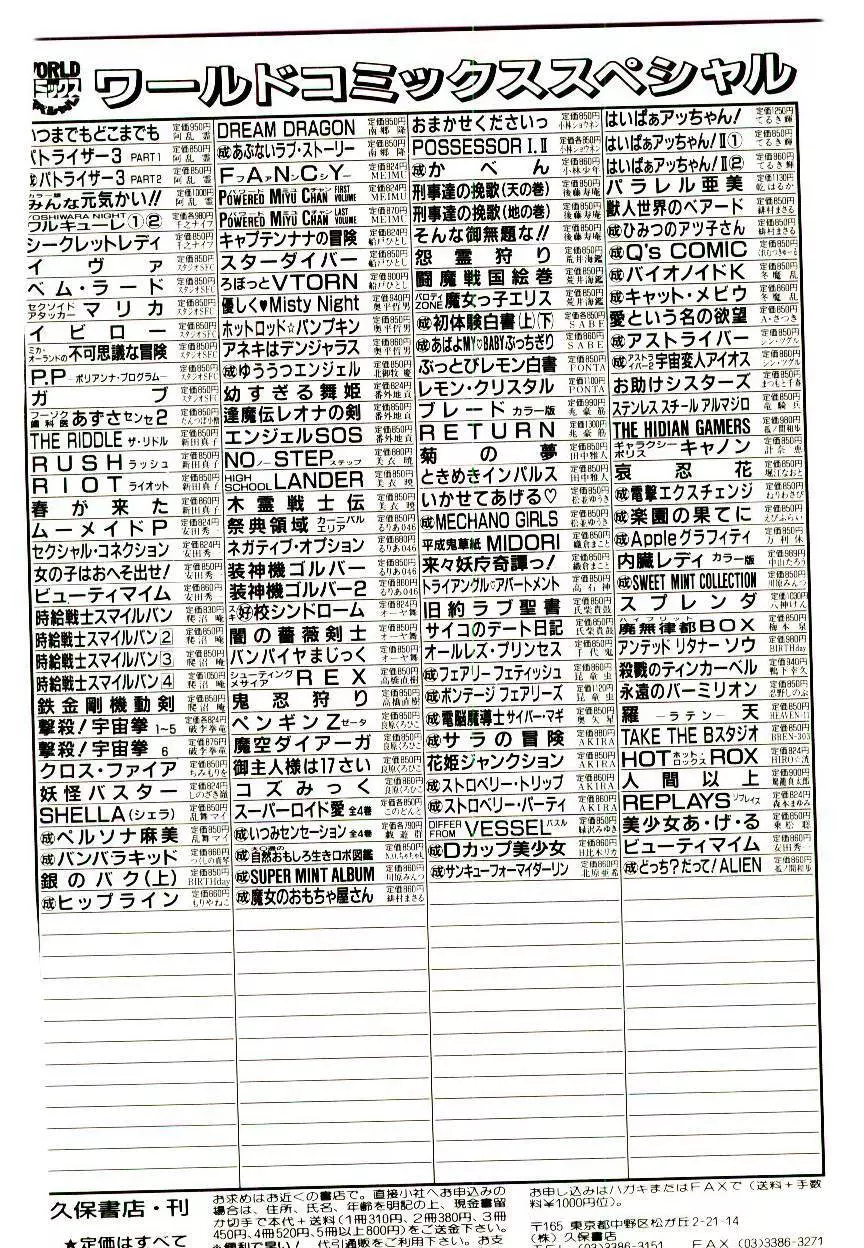 WORLD
ワールドコミックススペシャル
いつまでもどこまでも 定価950円 阿乱霊
パトライザー3 PART1 定価850円 阿乱霊
パトライザー3 PART2 定価850円 阿乱霊
みんな元気かい!! 定価1000円 阿乱霊
YOSHIWARA NIGHT ワルキューレ①② 定価各980円 千之ナイフ
シークレットレディ 定価850円 千之ナイフ
イヴァ 定価850円 スタジオSFC
ベム・ラード 定価850円 スタジオSFC
セクソイドアタッカー マリカ 定価850円 スタジオSFC
イビロー 定価850円 スタジオSFC
ミカ・オーランドの不可思議な冒険 定価850円 スタジオSFC
P.P. ―ポリアンナ・プログラム― 定価850円 スタジオSFC
ガブ 定価850円
フーゾク歯科医 あずさセンセ2 定価850円 たんつぼ小僧
THE RIDDLE ザ・リドル 定価850円 新田真子
RUSH ラッシュ 定価850円 新田真子
RIOT ライオット 定価850円 新田真子
春が来た 定価860円 新田真子
ムーメイドP 定価824円 安田秀一
セクシャル・コネクション 定価824円 安田秀一
女の子はおへそ出せ! 定価850円 安田秀一
ビューティマイム 定価860円 安田秀一
時給戦士スマイルバン 定価830円 爬沼唵
時給戦士スマイルバン2 定価850円 爬沼唵
時給戦士スマイルバン3 定価850円 爬沼唵
時給戦士スマイルバン4 定価1050円 爬沼唵
鉄金剛機動剣 定価850円 爬沼唵
撃殺!宇宙拳 1~5 定価各824円 破李拳竜
撃殺!宇宙拳 6 定価876円 破李拳竜
クロス・ファイア 定価850円 ちみもりを
妖怪バスター 定価824円 しのざき嶺
SHELLA(シェラ) 定価850円 乱舞マイ
成ペルソナ麻美 定価850円 乱舞マイ
成バンバラキッド 定価860円 つくしの真琴
銀のバク(上) 定価850円 BIRTHday
成ヒップライン 定価860円 もりやねこ
DREAM DRAGON 定価850円 南郷隆
成あぶないラブ・ストーリー 定価850円 南郷隆
FァAンNシCィY― 定価824円 MEIMU
パワード ミユ チャン POWERED MIYU CHAN FIRST VOLUME 定価824円 MEIMU
パワード ミユ チャン POWERED MIYU CHAN LAST VOLUME 定価870円 MEIMU
キャプテンナナの冒険 定価824円 船戸ひとし
スターダイバー 定価850円 船戸ひとし
ろぼっとVTORN 定価800円 船戸ひとし
優しく♥Misty Night 定価840円 奥平哲男
ホットロッド☆パンプキン 定価850円 奥平哲男
アネキはデンジャラス 定価860円 奥平哲男
成ゆううつエンジェル 定価850円 北御牧慶
幼すぎる舞姫 定価824円 番外地貢
逢魔伝レオナの剣 定価850円 番外地貢
エンジェルSOS 定価850円 番外地貢
NO ノー STEP ステップ 定価880円 美衣暁
HIGH SCHOOL LANDER 定価850円 美衣暁
木霊戦士伝 定価850円 美衣暁
祭典領域 カーニバルエリア 定価850円 るりあ046
ネガティブ・オプション 定価880円 るりあ046
装神機ゴルバー 定価850円 るりあ046
装神機ゴルバー2 定価860円 るりあ046
スキ好校シンドローム 定価824円 オーヤ舞
闇の薔薇剣士 定価850円 オーヤ舞
バンパイヤまじっく 定価850円 オーヤ舞
シューティングメサイア REX 定価850円 高橋直樹
鬼忍狩り 定価850円 高橋直樹
ペンギンZ ゼータ 定価850円 良原くろひこ
魔空ダイアーガ 定価850円 良原くろひこ
御主人様は17さい 定価850円 良原くろひこ
コズみっく 定価850円 良原くろひこ
スーパーロイド愛 全4巻 定価各850円 このどんと
成いつみセンセーション 全4巻 定価各790円 破遊群
成自然おもしろ生きロボ図鑑 定価850円 N.O.ちゃちゃ
成SUPER MINT ALBUM 定価860円 川原みんつ
成魔女のおもちゃ屋さん 定価860円 緋村まさる
おまかせくださいっ 定価850円 小林ショウネン
POSSESSOR I.II 定価各850円 小林ショウネン
成かべん 定価860円 小林少年
刑事達の挽歌(天の巻) 定価850円 後藤寿庵
刑事達の挽歌(地の巻) 定価850円 後藤寿庵
そんな御無題な!! 定価850円 後藤寿庵
怨霊狩り 定価850円 荒井海鑑
闘魔戦国絵巻 定価850円 荒井海鑑
パロディZONE 魔女っ子エリス 定価850円 荒井海鑑
成初体験白書(上)(下) 定価各850円 SABE
成あばよMY♡BABYぶっちぎり 定価860円 SABE
ぶっとびレモン白書 定価850円 PONTA
レモン・クリスタル 定価1100円 PONTA
ブレード カラー版 定価990円 兆豪筋
RETURN 定価1300円 兆豪筋
菊の夢 定価850円 田中雅人
ときめきインパルス 定価850円 田中雅人
いかせてあげる♡ 定価850円 松並ゆうき
成MECHANO GIRLS 定価850円 松並ゆうき
平成鬼草紙MIDORI 定価850円 磯倉まこと
来々妖斥奇譚っ! 定価850円 磯倉まこと
トライアングル♡アパートメント 定価850円 高石神
旧約ラブ聖書 定価850円 氏柴貴鼓
サイコのデート日記 定価850円 氏柴貴鼓
オールレズ・プリンセス 定価850円 千代鬼
成フェアリー フェティッシュ 定価860円 昆童虫
成ボンデージ フェアリーズ 定価1120円 昆童虫
成電脳魔導士サイバー・マギ 定価850円 奥久星
成サラの冒険 定価880円 AKIRA
花姫ジャンクション 定価850円 AKIRA
成ストロベリー・トリップ 定価850円 AKIRA
成ストロベリー・パーティ 定価860円 AKIRA
DIFFER FROM VESSEL バスル 定価850円 緑沢みゆき
成Dカップ美少女 定価860円 日比木リカ
成サンキューフォーマイダーリン 定価860円 北原亜希
はいぱぁアッちゃん! 定価1250円 てるき輝
はいぱぁアッちゃん!Ⅱ① 定価850円 てるき輝
はいぱぁアッちゃん!Ⅱ② 定価860円 てるき輝
パラレル亜美 定価1130円 乾はるか
獣人世界のベアード 定価850円 緋村まさる
成ひみつのアツ子さん 定価850円 緋村まさる
成Q's COMIC 定価850円
成バイオノイドK 定価850円 冬魔乱
成キャット・メビウ 定価860円 冬魔乱
愛という名の欲望 定価850円 A・さつき
成アストライバー 定価850円 シン・ツグル
成アストライバー2 宇宙変人アイオス 定価860円 シン・ツグル
お助けシスターズ 定価850円 まつもと千春
ステンレス スチール アルマジロ 定価850円 竜騎兵
THE HIDIAN GAMERS 定価980円
ギャラクシーポリス キャノン 定価860円 計奈恵
哀忍花 定価850円 堀江なおと
成電撃エクスチェンジ 定価850円 ねりわさび
成楽園の果てに 定価850円 えびふらい
成Appleグラフィティ 定価850円 万利休
内臓レディ カラー版 定価989円 中山たろう
成SWEET MINT COLLECTION 定価850円 川原みんつ
スプレンダ 定価1030円 八神けん
ハイブリット 魔無律都BOX 定価850円 梅本泉
アンテッド リタナー ソウ 定価980円 BIRTHday
殺戮のティンカーベル 定価940円 鴨下幸久
永遠のバーミリオン 定価850円 忍野しのぶ
羅 ―ラテン― 天 定価850円 HEAVEN-11
TAKE THE Bスタジオ 定価850円 BREN-303
HOT ホット・ロックス ROX 定価824円 HIRO宍茂
人間以上 定価900円 駕籠真太郎
REPLAYS リプレイズ 定価824円 森本まゆみ
美少女あ・げ・る 定価850円 乗松聡
ビューティマイム 定価860円 安田秀一
成どっち?だって!ALIEN 定価860円
久保書店・刊
★定価はすべて
お求めはお近くの書店で。直接小社へお申込みの
場合は、住所、氏名、年齢を明記の上、現金書留
か切手で本代+送料(1冊310円、2冊380円、3冊
450円、4冊520円、5冊以上800円)をご送金下さい。
★便利で早い! 代引通販をご利用下さい。お支
お申し込みはハガキまたはFAXで(送料+手数
料¥1000円位)。
〒165 東京都中野区松が丘2-21-14
(株)久保書店
TEL (03)3386-3151 FAX (03)3386-3271